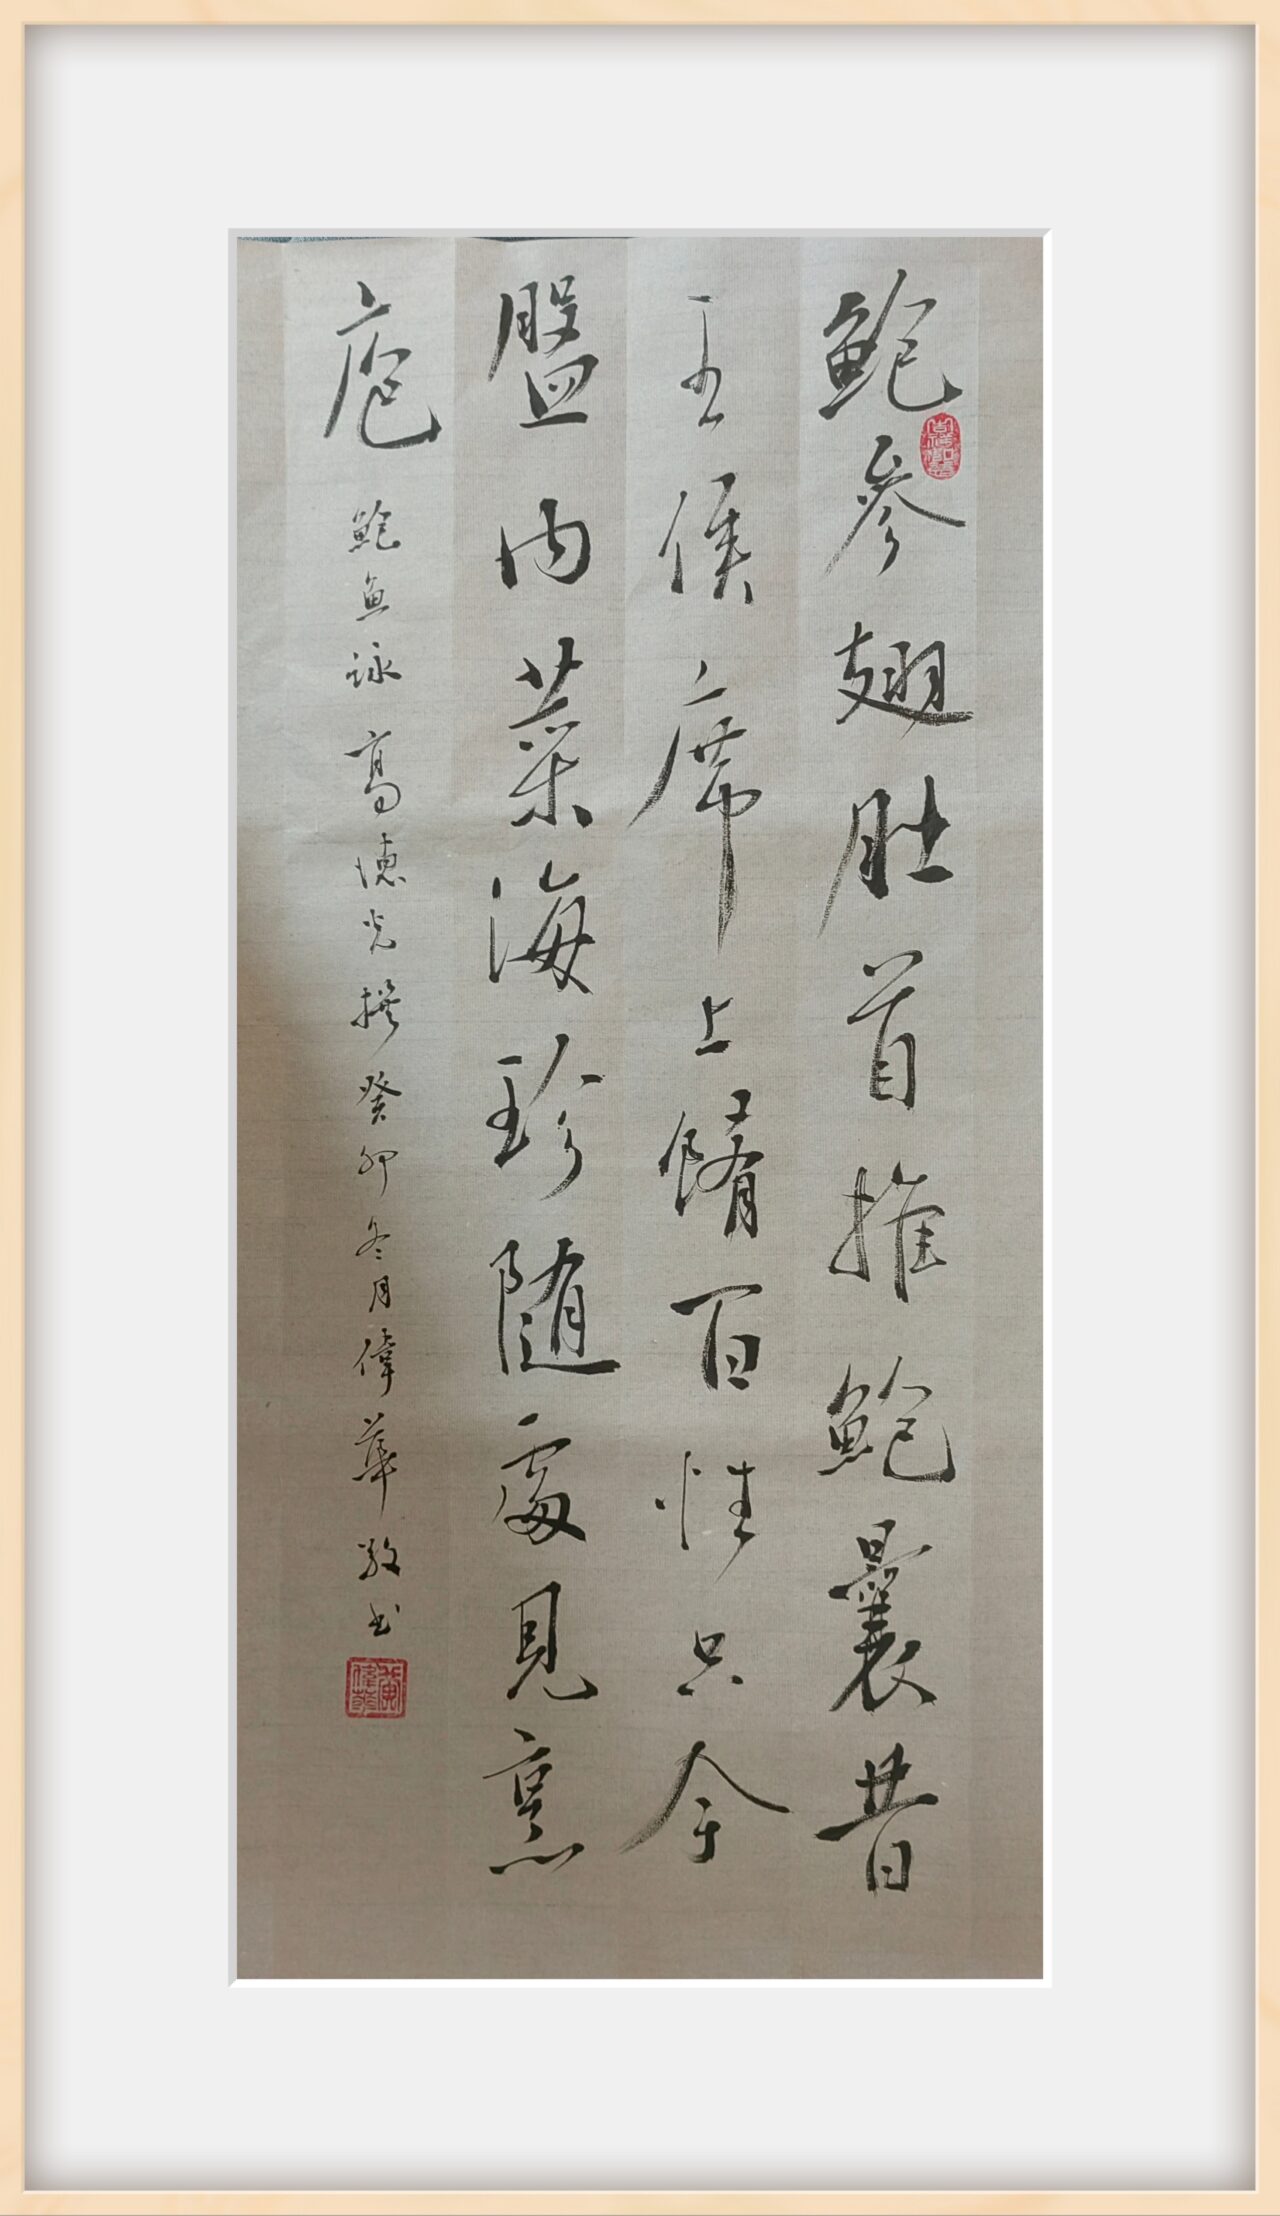 鮑參翅肚首推鮑曩昔
王侯席上餚百姓只今
盤内菜海珍隨處見烹
庖
鮑魚詠 高德光撰 癸卯冬月偉華敬书
黄偉華